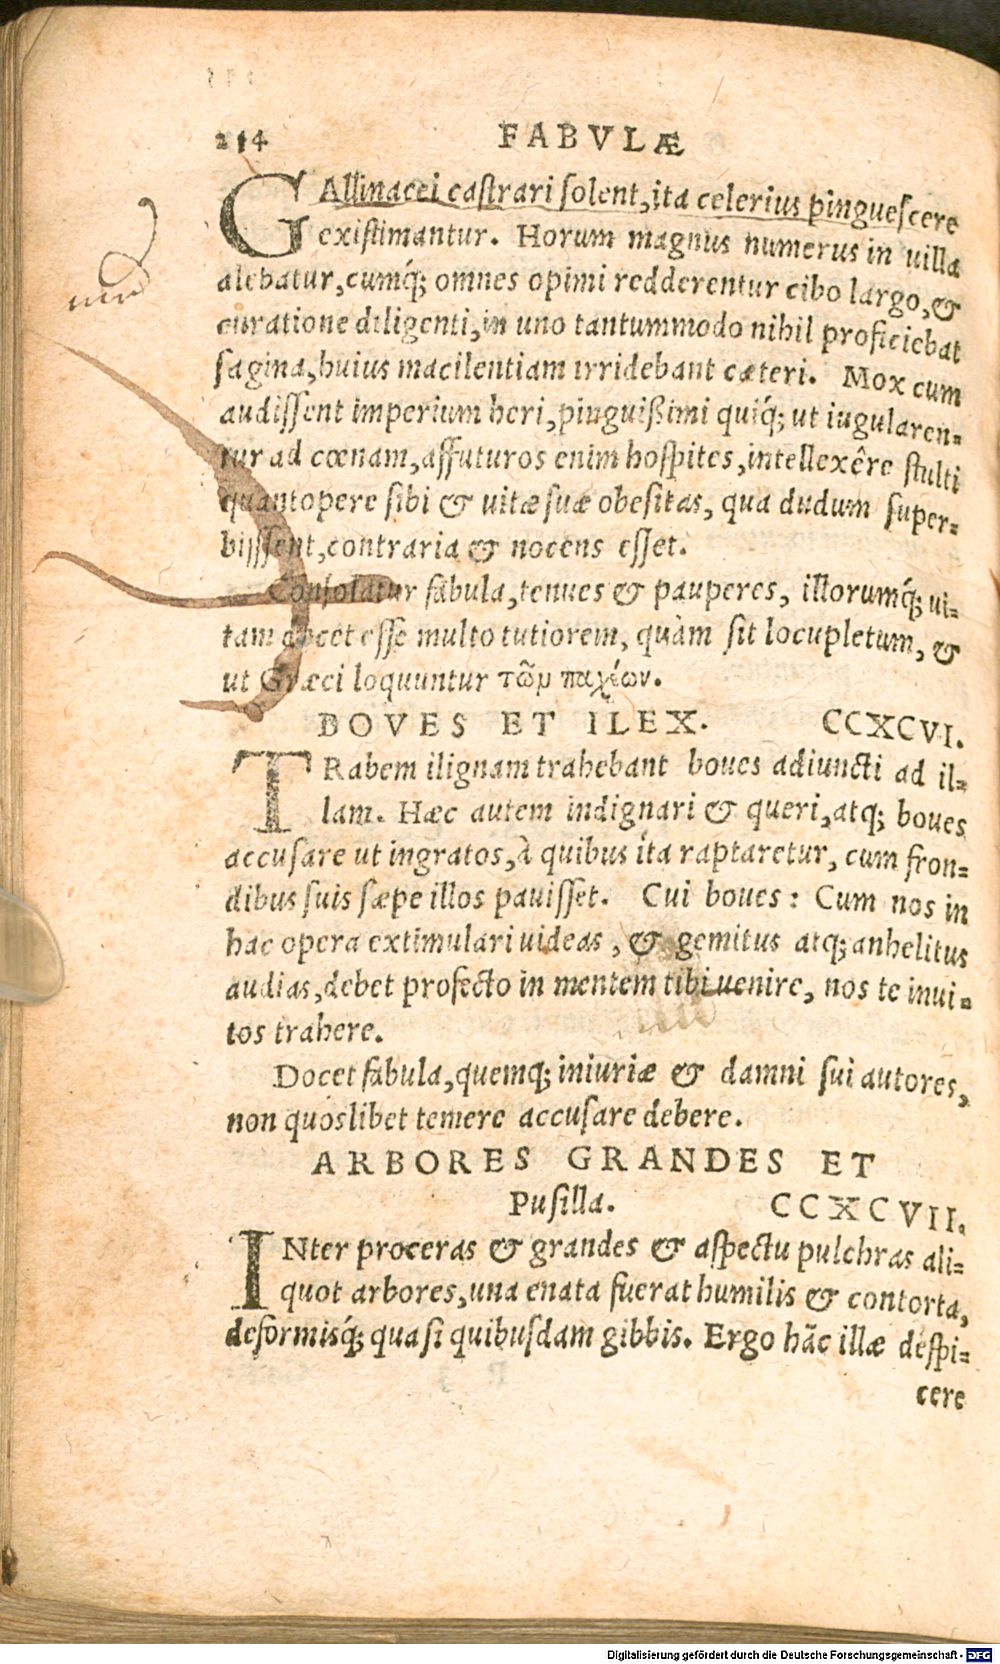 214 FABVLÆ
GAllinacei caſtrari ſolent, ita celerius pinguescere
existimantur. Horum magnus numerus in uilla
alebatur, cumq́; omnes opimi redderentur cibo largo, &
curatione diligenti, in uno tantummodo nihil proficiebat
ſagina, huius macilentiam irridebant cæteri. Mox cum
audiſſent imperium heri, pinguißimi quiq́; ut iugularen-
tur ad cœnam, affuturos enim hoſpites, intellexêre ſtulti
quantopere ſibi & uitæ ſuæ obeſitas, qua dudum ſuper-
biſſent, contraria & nocens eſſet.
Conſolatur fabula, tenues & pauperes, illorumq́; ui-
tam docet eſſe multo tutiorem, quàm ſit locupletum, &
ut Græci loquuntur τῶμ παχέων.
BOVES ET ILEX. CCXCVI.
TRabem ilignam trahebant boues adiuncti ad il-
lam. Hæc autem indignari & queri, atq; boues
accuſare ut ingratos, à quibus ita raptaretur, cum fron-
dibus ſuis ſæpe illos pauiſſet. Cui boues: Cum nos in
hac opera extimulari uideas, & gemitus atq; anhelitus
audias, debet profecto in mentem tibi uenire, nos te inui-
tos trahere.
Docet fabula, quemq; iniuriæ & damni ſui autores,
non quoslibet temere accuſare debere.
ARBORES GRANDES ET
Puſilla. CCXCVII.
INter proceras & grandes & aſpectu pulchras ali-
quot arbores, una enata fuerat humilis & contorta,
deformisq́; quaſi quibuſdam gibbis. Ergo hāc illæ deſpi-
cere
Digitalisierung gefördert durch die Deutsche Forschungsgemeinschaft - DFG